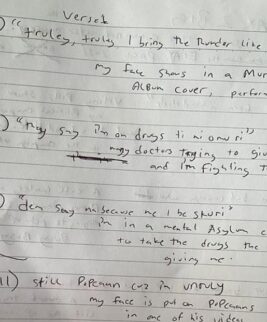 Verse
) "truley, truley I bring the thunder like
my face shows in a Mur
Album cover, perform
) "they say i'm on drugs ti ni omo ri"
doctors trying to giv
and I'm fighting t
) "dem say na because me I be
i'm in a mental Asylum c
to take the drugs the
giving me.
11) still Popcann cuz im unruly
my face is put on Popcanns
in one of his videos